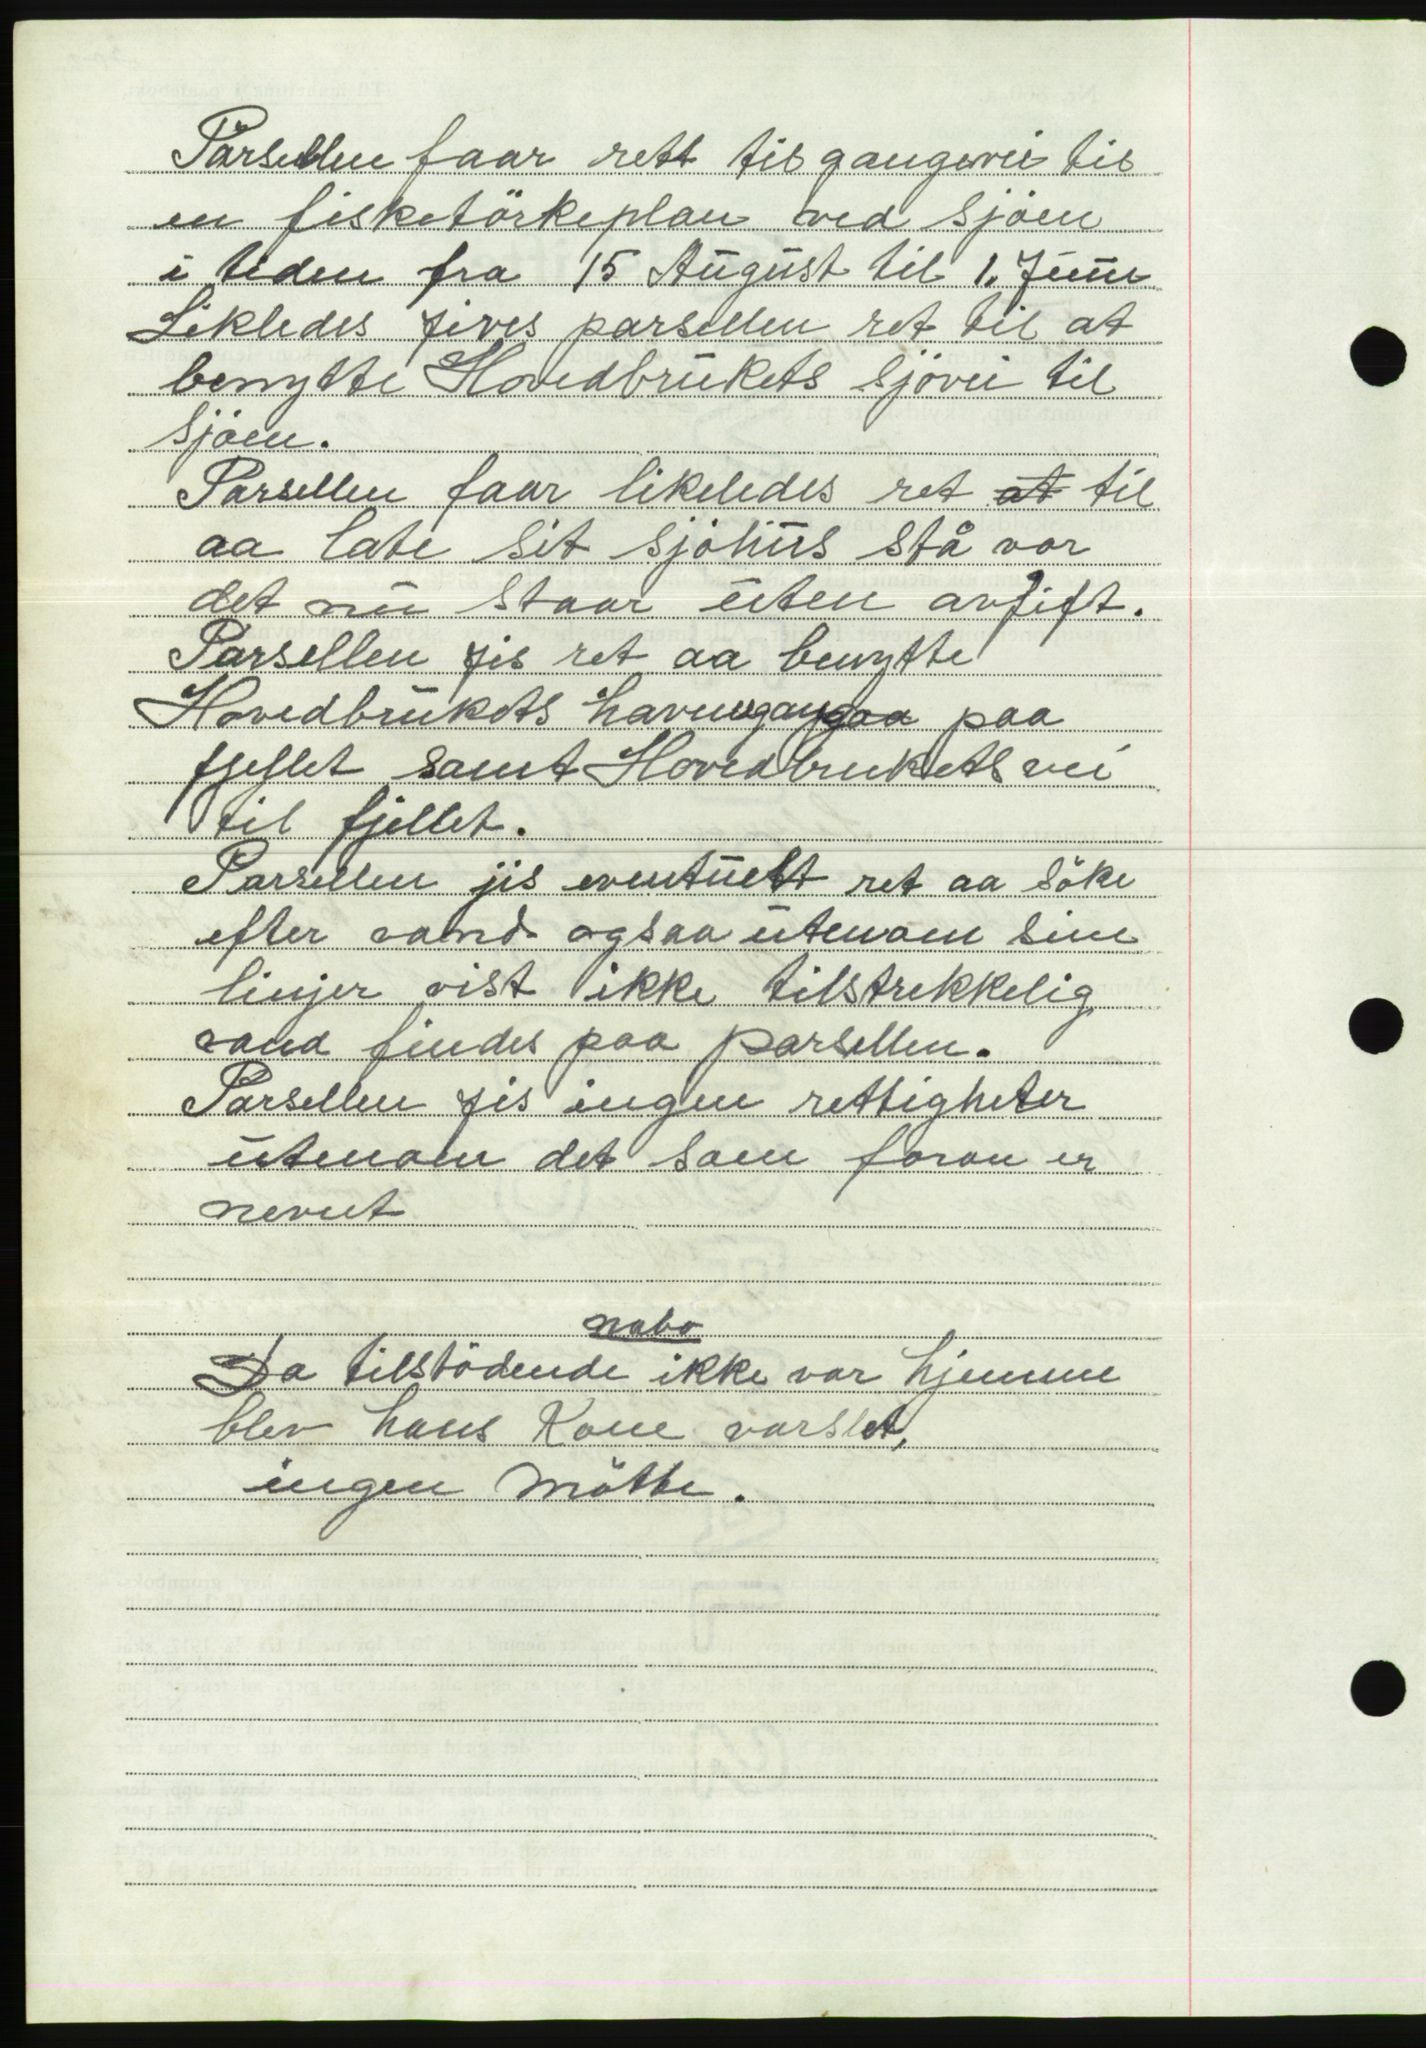 Parsellen faar rett til gangevei til
en fisketörkeplan ved sjöen
i tiden fra 15 August til 1. Juni
Likledes jives parsellen ret til at
benytte Hovedbrukets sjövei til
sjöen.
Parsellen faar likeledes ret at til
aa late sit sjöhus stå vor
det nu staar uten avjift.
Parsellen jis ret aa benytte
Hovedbrukets havnegang paa
fjellet samt Hovedbrukets vei
til fjellet.
Parsellen jis eventuelt ret aa söke
efter vand ogsaa utenom sine
linjer vist ikke tilstrekkelig
vand findes paa parsellen.
Parsellen jis ingen rettigheter
utenom det som foran er
nevnt
nabo
Da tilstödende ikke var hjemme
blev hans Kone varslet,
ingen mötte.